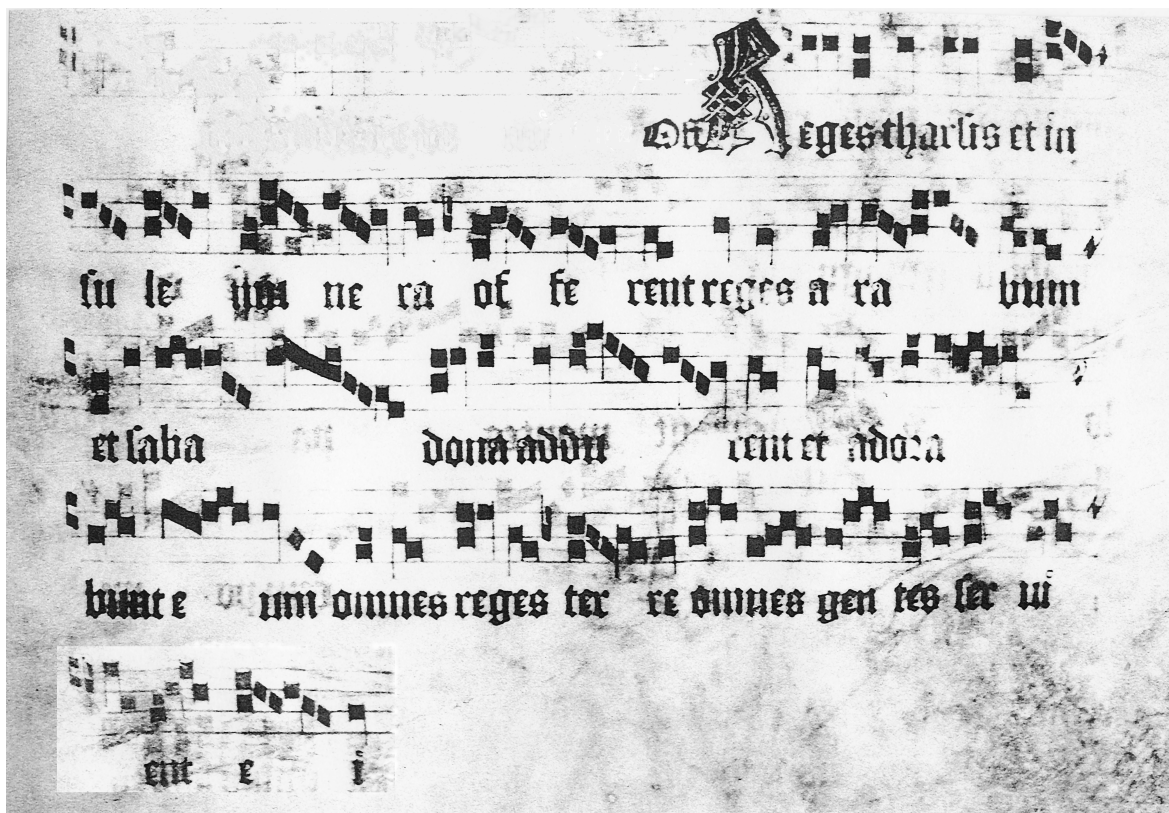 Off Reges tharsis et in
su le mu ne ra of fe rent reges a ra bum
et saba dona addu cent et adora
bunt e um omnes reges ter re omnes gen tes ser ui
ent e i